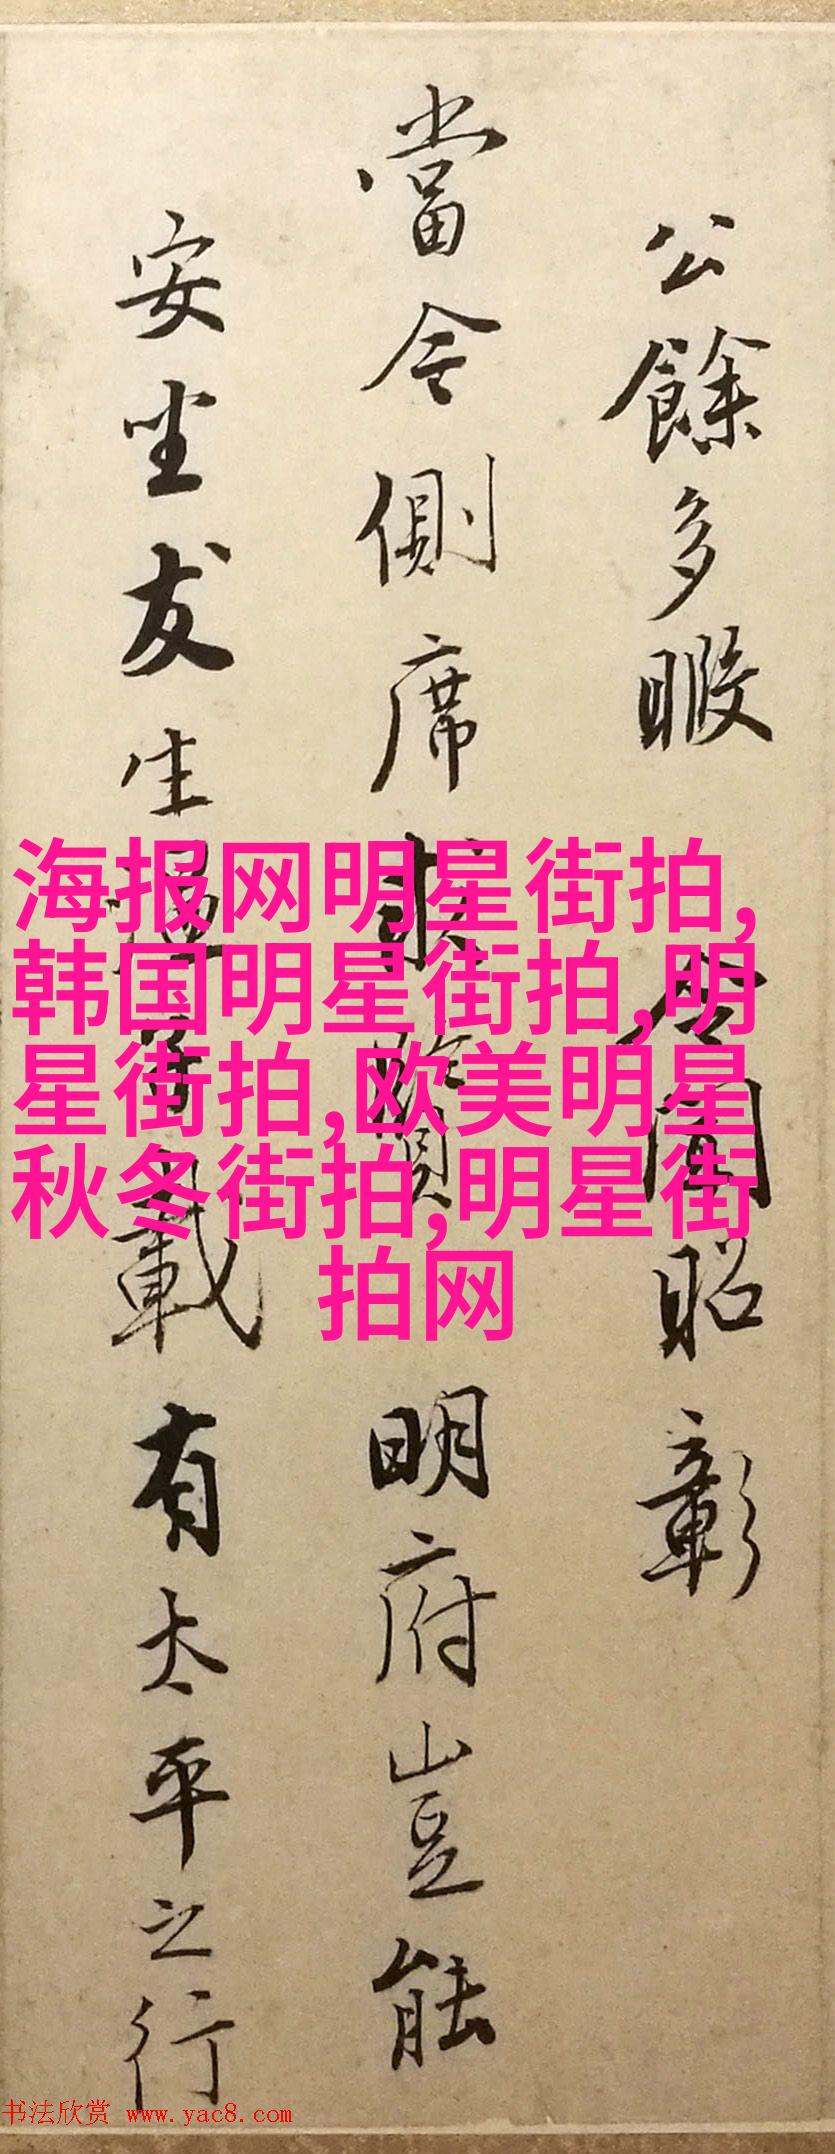 公餘多暇 令聞昭彰
當今側席求賢 明府豈能
安坐友生載有太平之行
海报网明星街拍,
韩国明星街拍,明
星街拍,欧美明星
秋冬街拍,明星街
拍网
书法欣赏 www.yac8.com